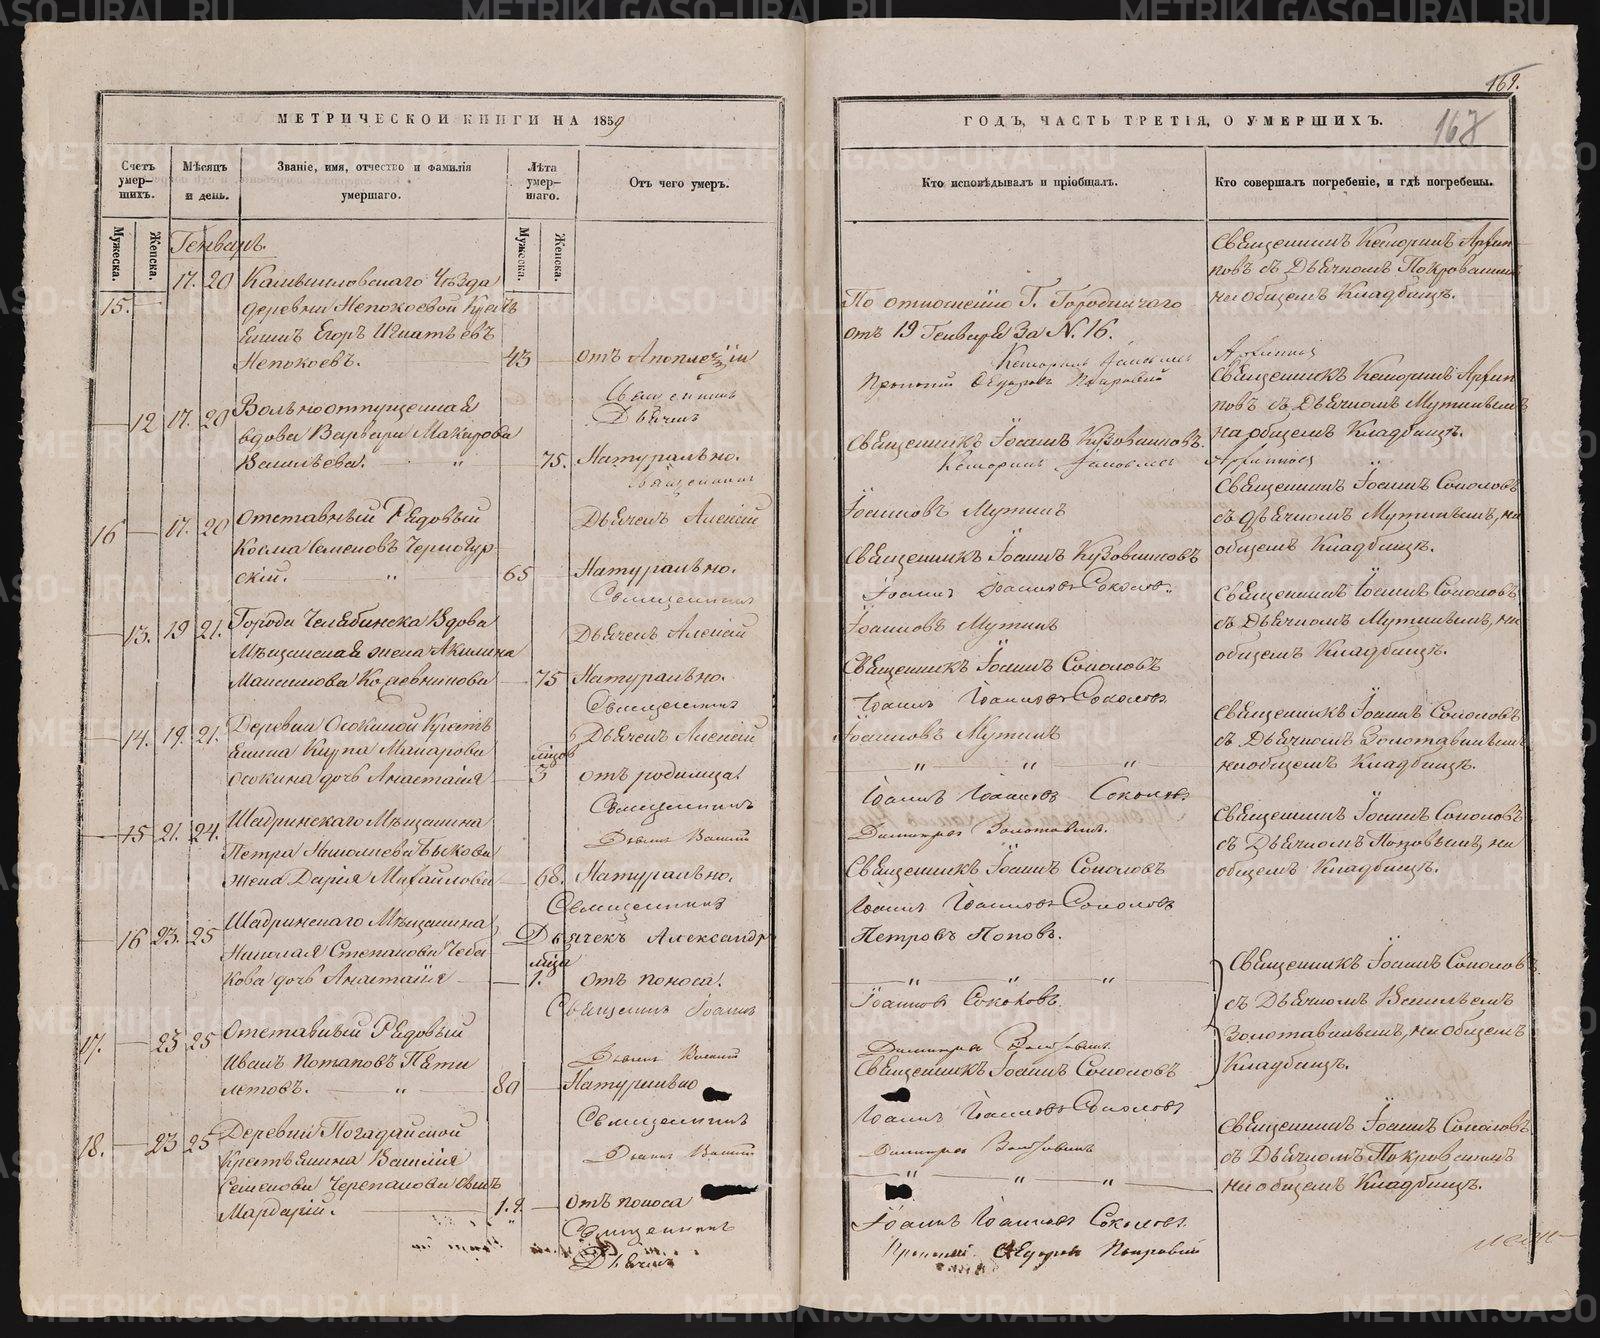 169.
168
МЕТРИЧЕСКОЙ КНИГИ НА 1859
Счетъ умер-шихъ.
Мѣсяцъ и день.
Званіе, имя, отчество и фамилія умершаго.
Лѣта умер-шаго.
Отъ чего умеръ.
Мужеска. Женска.
Мужеска. Женска.
Генварь.
15. 17. 20 Камышловскаго Уѣзда
деревни Непокоевой Кресть
янинъ Егоръ Игнатьевъ
Непокоевъ. 43 отъ Апоплексіи
Священникъ
12 17. 20 Вольноотпущенная Дьячекъ
вдова Варвара Макарова
Васильева. " 75. Натурально.
Священникъ
16 17. 20 Отставный Рядовый Дьячекъ Алексій
Косма Семеновъ Черногур
скій. " 65 Натурально.
Священникъ
13. 19 21. Города Челябинска Вдова Дьячекъ Алексій
Мѣщанская жена Акилина
Максимова Кожевникова 75 Натурально.
Священникъ
14. 19. 21. Деревни Осокиной Кресть Дьячекъ Алексій
янина Макарова мѣсяцов
Осокина дочь Анастасія 3 отъ родимца.
Священникъ
15 21. 24. Шадринскаго Мѣщанина Дьячекъ
Петра Николаева Быкова
жена Дарія Михайлова 68. Натурально.
Священникъ
16 23. 25 Шадринскаго Мѣщанина Дьячекъ Александръ
Николая Степанова Чеба
кова дочь Анастасія 1. отъ поноса.
Священникъ Іоаннъ
17. 23 25 Отставный Рядовый
Иванъ Потаповъ Пяти
летовъ. " 80 Натурально
Священникъ
18. 23 25 Деревни Погадайской
Крестьянина Василія
Семенова Черепанова сынъ
Мардарій. 1. отъ поноса
Священникъ
Дьячекъ
ГОДЪ, ЧАСТЬ ТРЕТІЯ, О УМЕРШИХЪ.
Кто исповѣдывалъ и пріобщалъ.
Кто совершалъ погребеніе, и гдѣ погребены.
Священникъ Архип
повъ съ Дьячкомъ Покровскимъ
на общемъ Кладбищѣ.
По отношенію Г. Городничаго
отъ 19 Генваря за N. 16.
Архипповъ
Прокопій Ѳедоровъ Покровскій
Священникъ Архип
повъ съ Дьячкомъ Мутинымъ
на общемъ Кладбищѣ.
Священникъ Іоаннъ Кузовниковъ.
Архипповъ
Священникъ Іоаннъ Соколовъ
Іоанновъ Мутинъ
съ Дьячкомъ Мутинымъ, на
общемъ Кладбищѣ.
Священникъ Іоаннъ Кузовниковъ
Іоаннъ Іоанновъ Соколовъ.
Священникъ Іоаннъ Соколовъ
Іоанновъ Мутинъ
съ Дьячкомъ Мутинымъ, на
общемъ Кладбищѣ.
Священникъ Іоаннъ Соколовъ
Іоаннъ Іоанновъ Соколовъ
Священникъ Іоаннъ Соколовъ
Іоанновъ Мутинъ
съ Дьячкомъ Золотавинымъ
" " "
на общемъ Кладбищѣ.
Іоаннъ Іоанновъ Соколовъ
Димитріевъ Золотавинъ.
Священникъ Іоаннъ Соколовъ
съ Дьячкомъ Поповымъ, на
общемъ Кладбищѣ.
Священникъ Іоаннъ Соколовъ
Іоаннъ Іоанновъ Соколовъ
Петровъ Поповъ.
" " "
Священникъ Іоаннъ Соколовъ
Іоанновъ Соколовъ.
съ Дьячкомъ Васильемъ
Золотавинымъ, на общемъ
Кладбищѣ.
Священникъ Іоаннъ Соколовъ
Іоаннъ Іоанновъ Соколовъ
Священникъ Іоаннъ Соколовъ
съ Дьячкомъ Покровскимъ
" " "
на общемъ Кладбищѣ.
Іоаннъ Іоанновъ Соколовъ.
Прокопій Ѳедоровъ Покровскій
METRIKI.GASO-URAL.RU